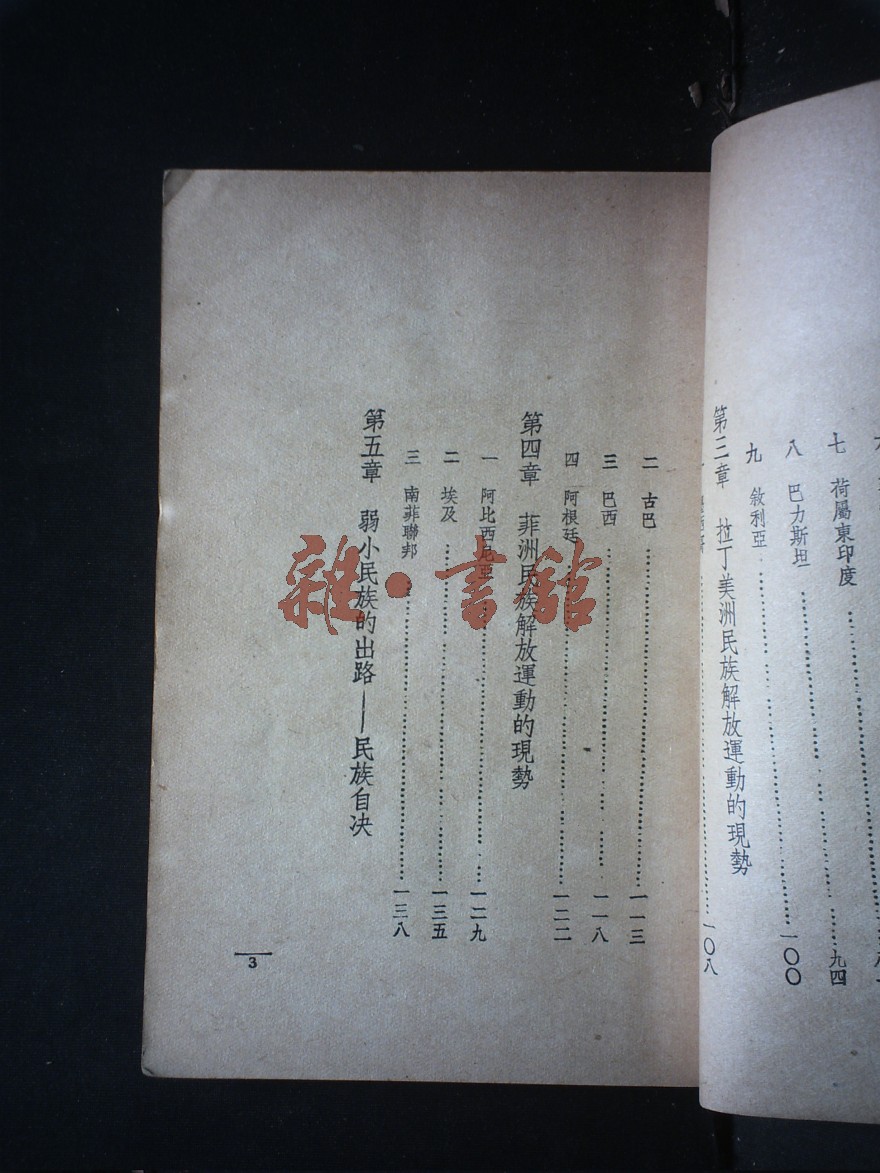 七 荷屬東印度
八 巴力斯坦……九四
九 敘利亞……一〇〇
第三章 拉丁美洲民族解放運動的現勢
……一〇八
二 古巴……一一三
三 巴西……一一八
四 阿根廷……一二二
第四章 菲洲民族解放運動的現勢
一 阿比西尼亞……一二九
二 埃及……一三五
三 南菲聯邦……一三八
第五章 弱小民族的出路——民族自决
3
雜·書館